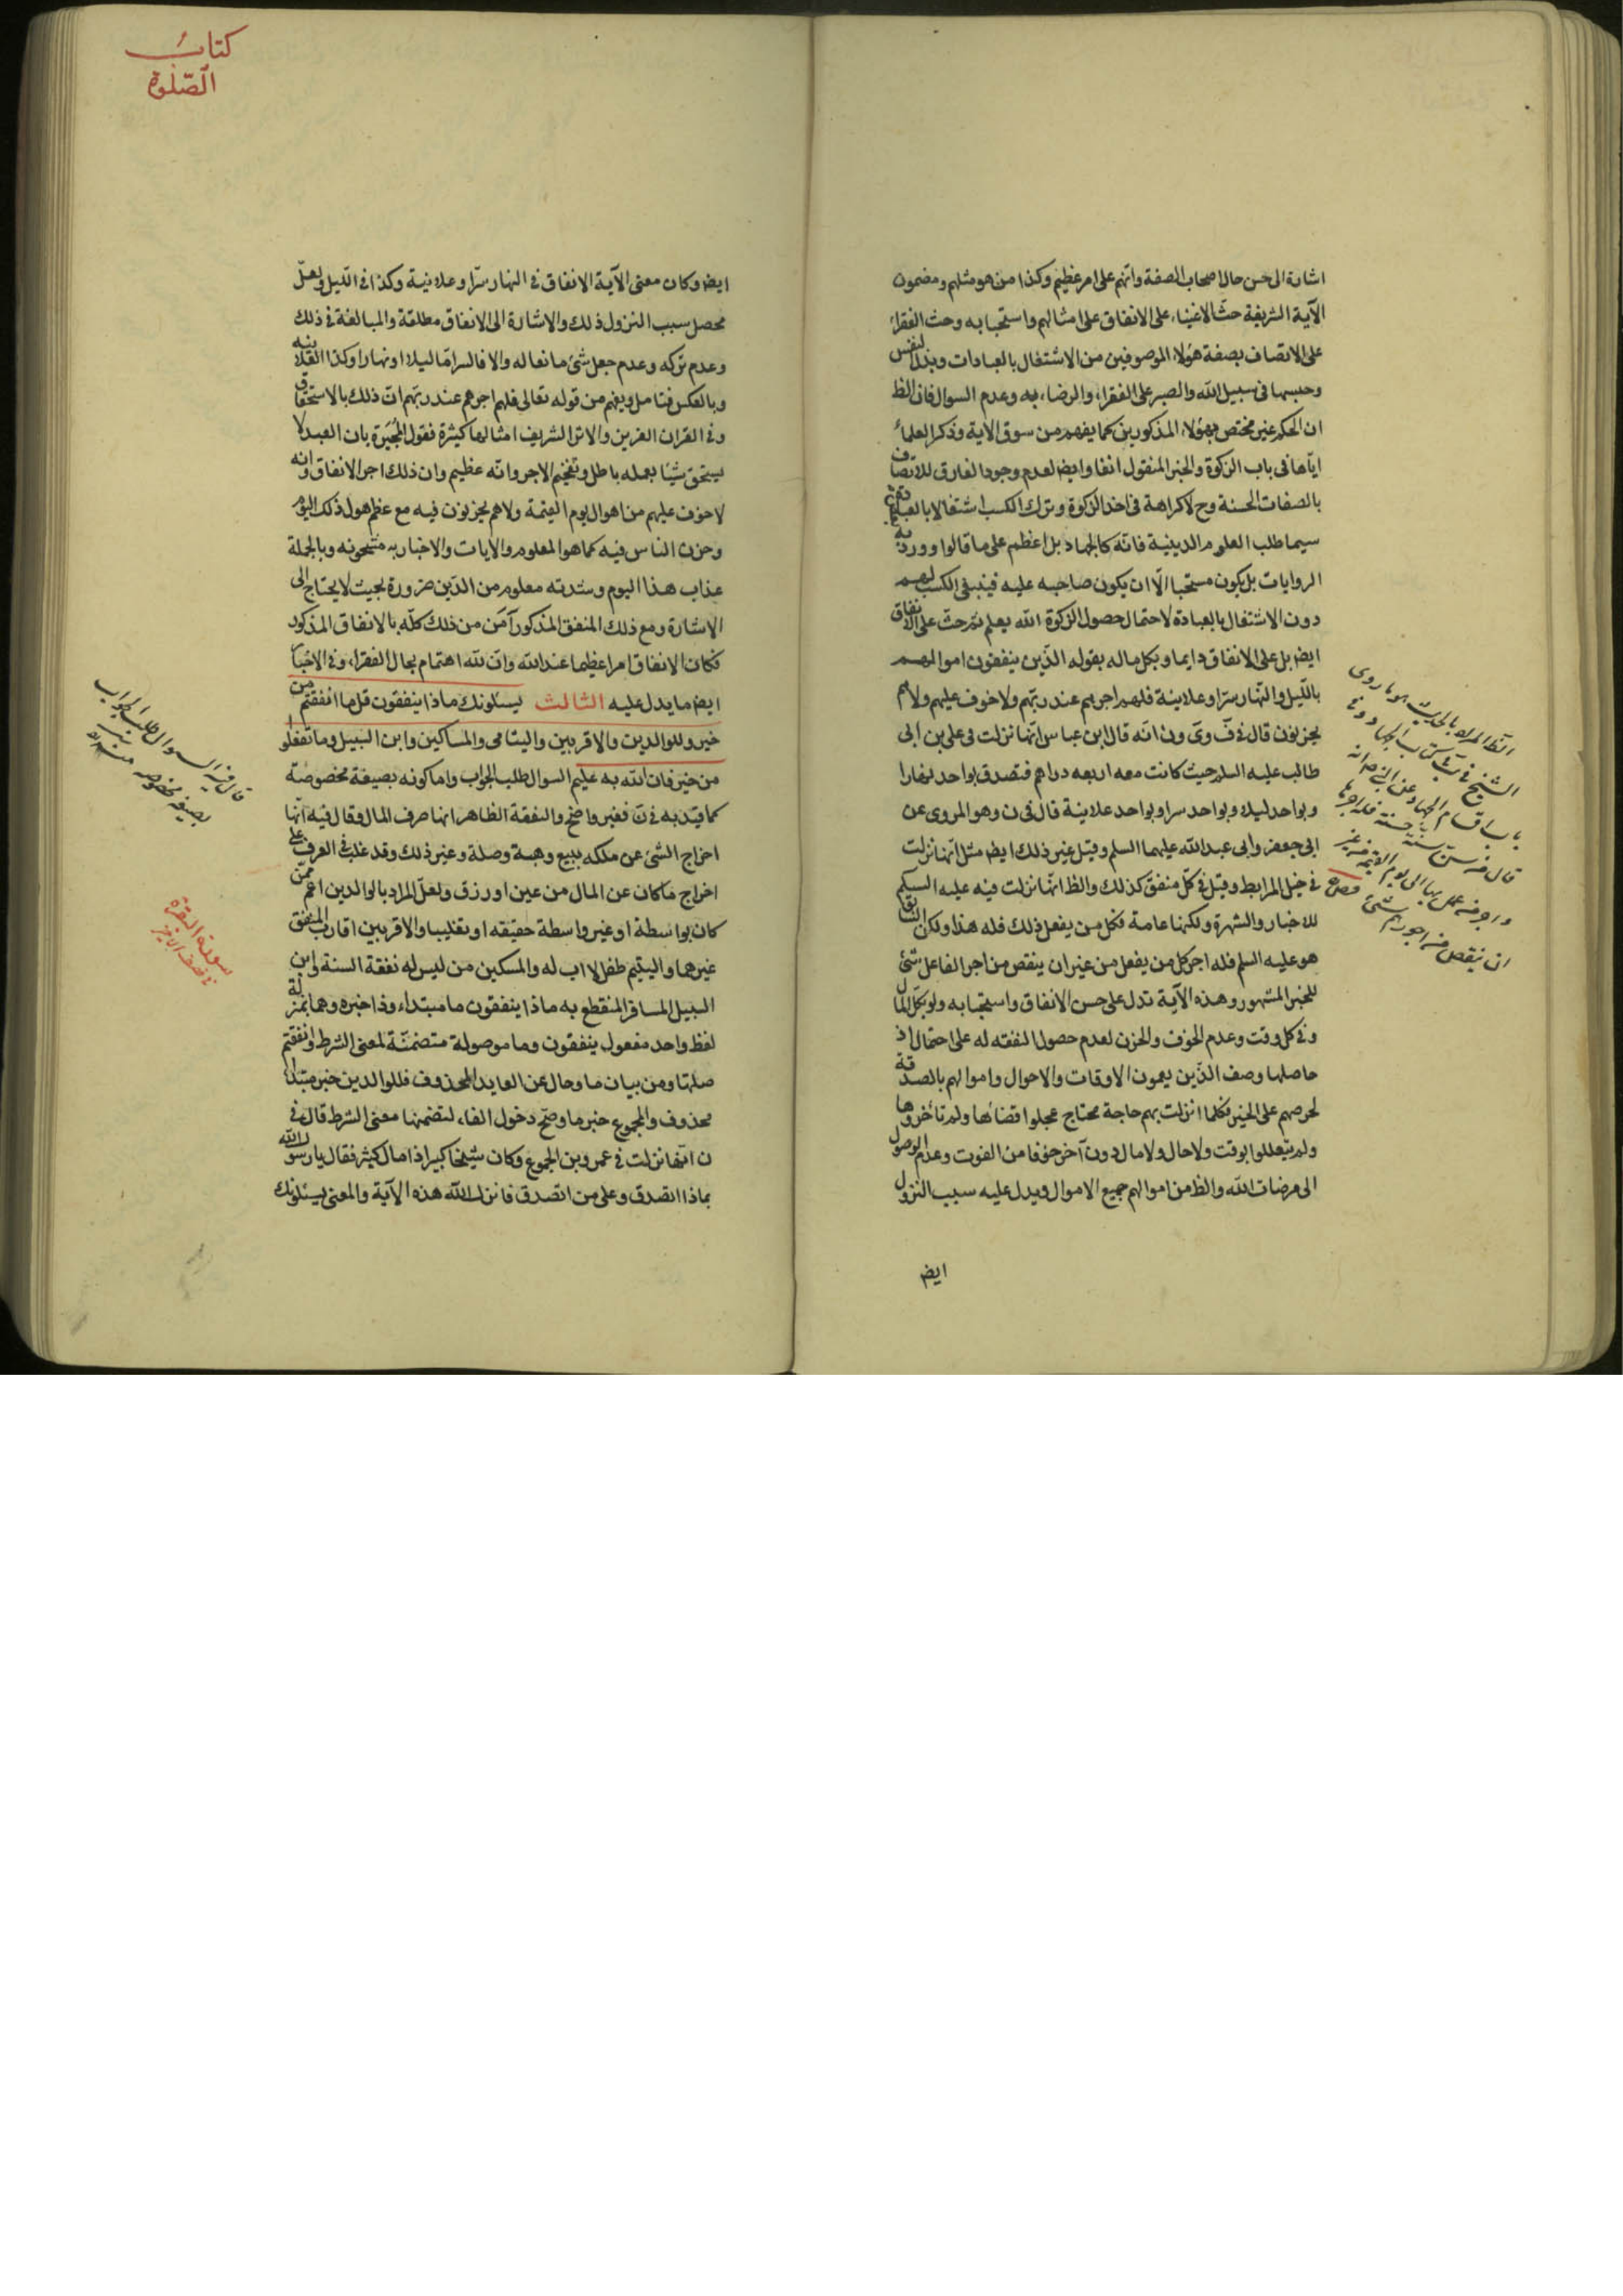 اشارة الى حسن حال اصحاب الصفة وانهم على امر عظيم وكذا من هو مثلهم ومضمون
الآية الشريفة حث الاغنياء على الانفاق على امثالهم واستحبابه وحث الفقراء
على الاتصاف بصفة هؤلاء الموصوفين من الاشتغال بالعبادات وبذل النفس
وحبسها فى سبيل الله والصبر على الفقراء والرضاء به وعدم السوال فان الظ
ان الحكم غير مختص بهؤلاء المذكورين كما يفهم من سوق الاية وذكر العلماء
اياها فى باب الزكوة والخبر المنقول انفا وايض لعدم وجود الفارق للاتصاف
بالصفات الحسنة وح لا كراهة فى اخذ الزكوة وترك الكسب اشتغالا بالعبادة
سيما طلب العلوم الدينية فانه كالجهاد بل اعظم على ما قالوا وورد به
الروايات بل يكون مستحبا الا ان يكون صاحبه عليه فينبغى الكسب لهم
دون الاشتغال بالعبادة لاحتمال حصول الزكوة الله يعلم ثم حث على الانفاق
ايض بل على الانفاق دايما وبكل ماله بقوله الذين ينفقون اموالهم
بالليل والنهار سرا وعلانية فلهم اجرهم عند ربهم ولا خوف عليهم ولا هم
يحزنون قال فى ق وى ون انه قال ابن عباس انها نزلت فى على بن ابى
طالب عليه السلم حيث كانت معه اربعه دراهم فتصدق بواحد نهارا
وبواحد ليلا وبواحد سرا وبواحد علانية قال فى ن وهو المروى عن
ابى جعفر وابى عبد الله عليهما السلم وقيل غير ذلك ايض مثل انها نزلت
فى خيل المرابط وقيل فى كل منفق كذلك والظ انها نزلت فيه عليه السلم
للاخبار والشهرة ولكنها عامة فكل من يفعل ذلك فله هذا ولكن السابق
هو عليه السلم فله اجر كل من يفعل من غير ان ينقص من اجر الفاعل شئ
للخبر المشهور وهذه الآية تدل على حسن الانفاق واستحبابه ولو بكل المال
وفى كل وقت وعدم الخوف والحزن لعدم حصول النفقه له على احتمال اذ
حاصلها وصف الذين يعمون الاوقات والاحوال واموالهم بالصدقة
لحرصهم على الخير فكلما نزلت بهم حاجة محتاج عجلوا قضائها ولم تأخروها
ولم يتعللوا بوقت ولا حال ولا مال دون آخر خوفا من الفوت وعدم الوصول
الى مرضات الله والظ من اموالهم جميع الاموال ويدل عليه سبب النزول
ايض
الظ المراد بالخبر هو ما روى
الشيخ فى
باب اقسام الجهاد عن النبى ص انه
قال من سن سنة حسنة فله اجرها
واجر من عمل بها الى يوم القيمة من غير
ان ينقص من اجورهم شئ
كتاب
الصلوة
ايض وكان معنى الآية الانفاق فى النهار سرا وعلانية وكذا فى الليل ولعل
محصل سبب النزول ذلك والاشارة الى الانفاق مطلقة والمبالغة فى ذلك
وعدم تركه وعدم جعل شئ مانعا له والا فالسر اما ليلا او نهارا وكذا العلانية
وبالعكس فتامل ويفهم من قوله تعالى فلهم اجرهم عند ربهم ان ذلك بالاستحقاق
وفى القران العزيز والاثر الشريف امثالها كثيرة فقول المجبرة بان العبد لا
يستحق شيئا بعمله باطل وتفخيم الاجر وانه عظيم وان ذلك اجر الانفاق وانه
لا خوف عليهم من اهوال يوم القيمة ولا هم يحزنون فيه مع عظم هول ذلك اليوم
وحزن الناس فيه كما هو المعلوم والايات والاخبار به مشحونه وبالجملة
عذاب هذا اليوم وشدته معلوم من الدين ضرورة بحيث لا يحتاج الى
الاشارة ومع ذلك المنفق المذكور آمن من ذلك كله بالانفاق المذكور
فكان الانفاق امرا عظيما عند الله وان لله اهتمام بحال الفقراء وفى الاخبار
ايض ما يدل عليه الثالث يسئلونك ماذا ينفقون قل ما انفقتم من
خير وللوالدين والاقربين واليتامى والمساكين وابن السبيل وما تفعلوا
من خير فان الله به عليم السوال طلب الجواب واما كونه بصيغة مخصوصة
كما قيد به فى ن فغير واضح والنفقة الظاهر انها صرف المال وقال فيه انها
اخراج الشئ عن ملكه ببيع وهبة وصلة وغير ذلك وقد غلب فى العرف على
اخراج ما كان عن المال من عين او رزق ولعل المراد بالوالدين اعم ممن
كان بواسطة او غير واسطة حقيقه او تغليبا والاقربين اقارب المنفق
غيرهما واليتيم طفل لا اب له والمسكين من ليس له نفقة السنة وابن
السبيل المسافر المنقطع به ماذا ينفقون ما مبتداء وذا خبره وهما بمنزلة
لفظ واحد مفعول ينفقون وما موصولة متضمنة لمعنى الشرط وانفقتم
صلتها ومن بيان ما وحال عن العايد المحذوف فللوالدين خبر مبتداء
محذوف والمجموع خبر ما وصح دخول الفاء لتضمنها معنى الشرط قال فى
ن انها نزلت فى عمرو بن الجموع وكان شيخا كبيرا ذا مال كثير فقال يا رسول الله
بماذا اتصدق وعلى من اتصدق فانزل الله هذه الآية والمعنى يسئلونك
قال فيه السوال طلب الجواب
بصيغة مخصوصه
سورة البقرة